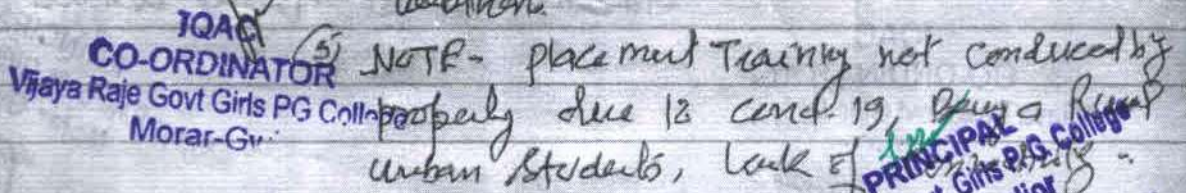 IQAC
CO-ORDINATOR
Vijaya Raje Govt Girls PG College
Morar-Gw
(5) NOTE- placement Training not conducted by
properly due to covid-19, Rural
urban Students, Lack of
PRINCIPAL
Govt Girls P.G. College